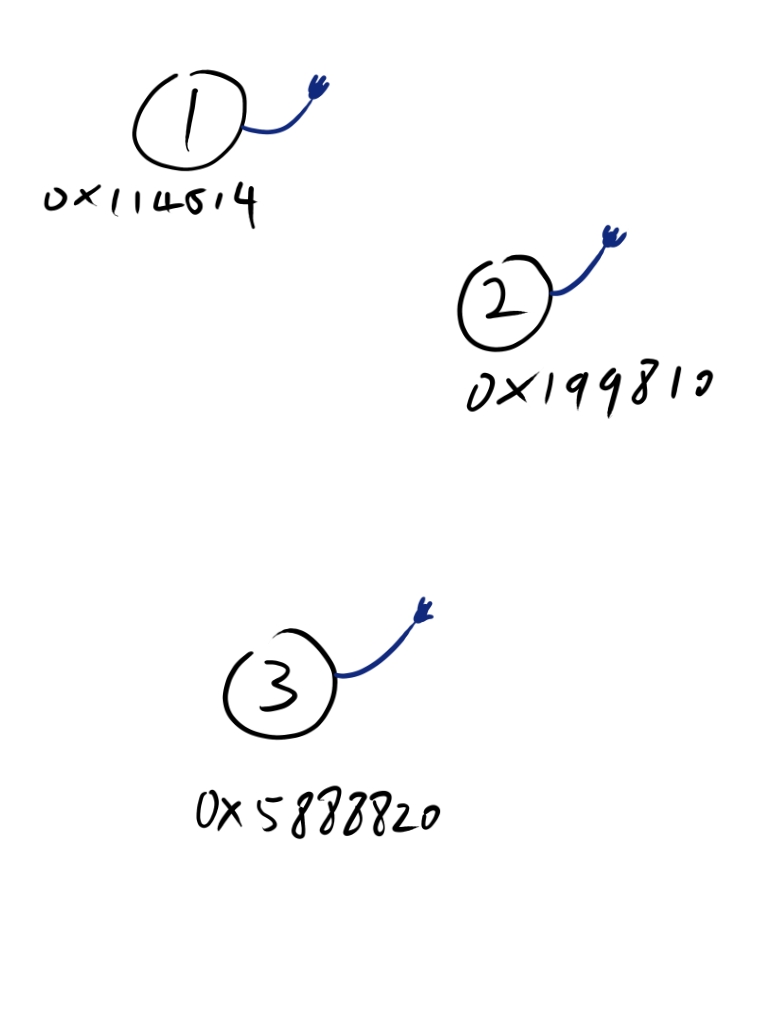 1
0x114514
2
0x199810
3
0x5888820